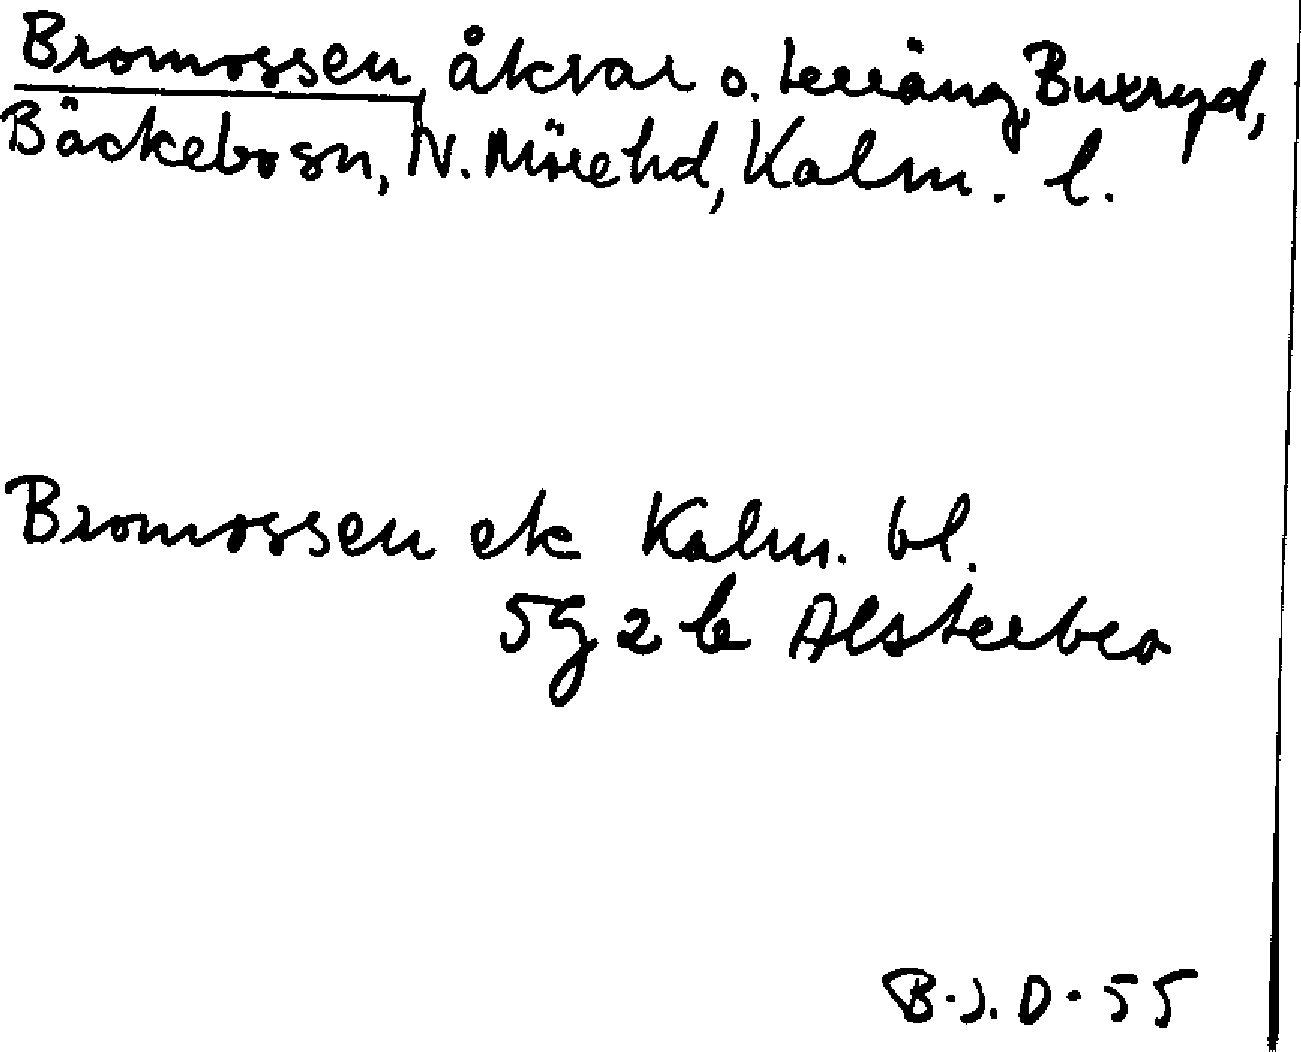 Bromossen, åkrar o. terräng, Buxryd,
Bäckebo sn, N. Möre hd, Kalm. l.
Bromossen ek Kalm. bl.
5g 2 b Alsterbro
B.J.D. 55